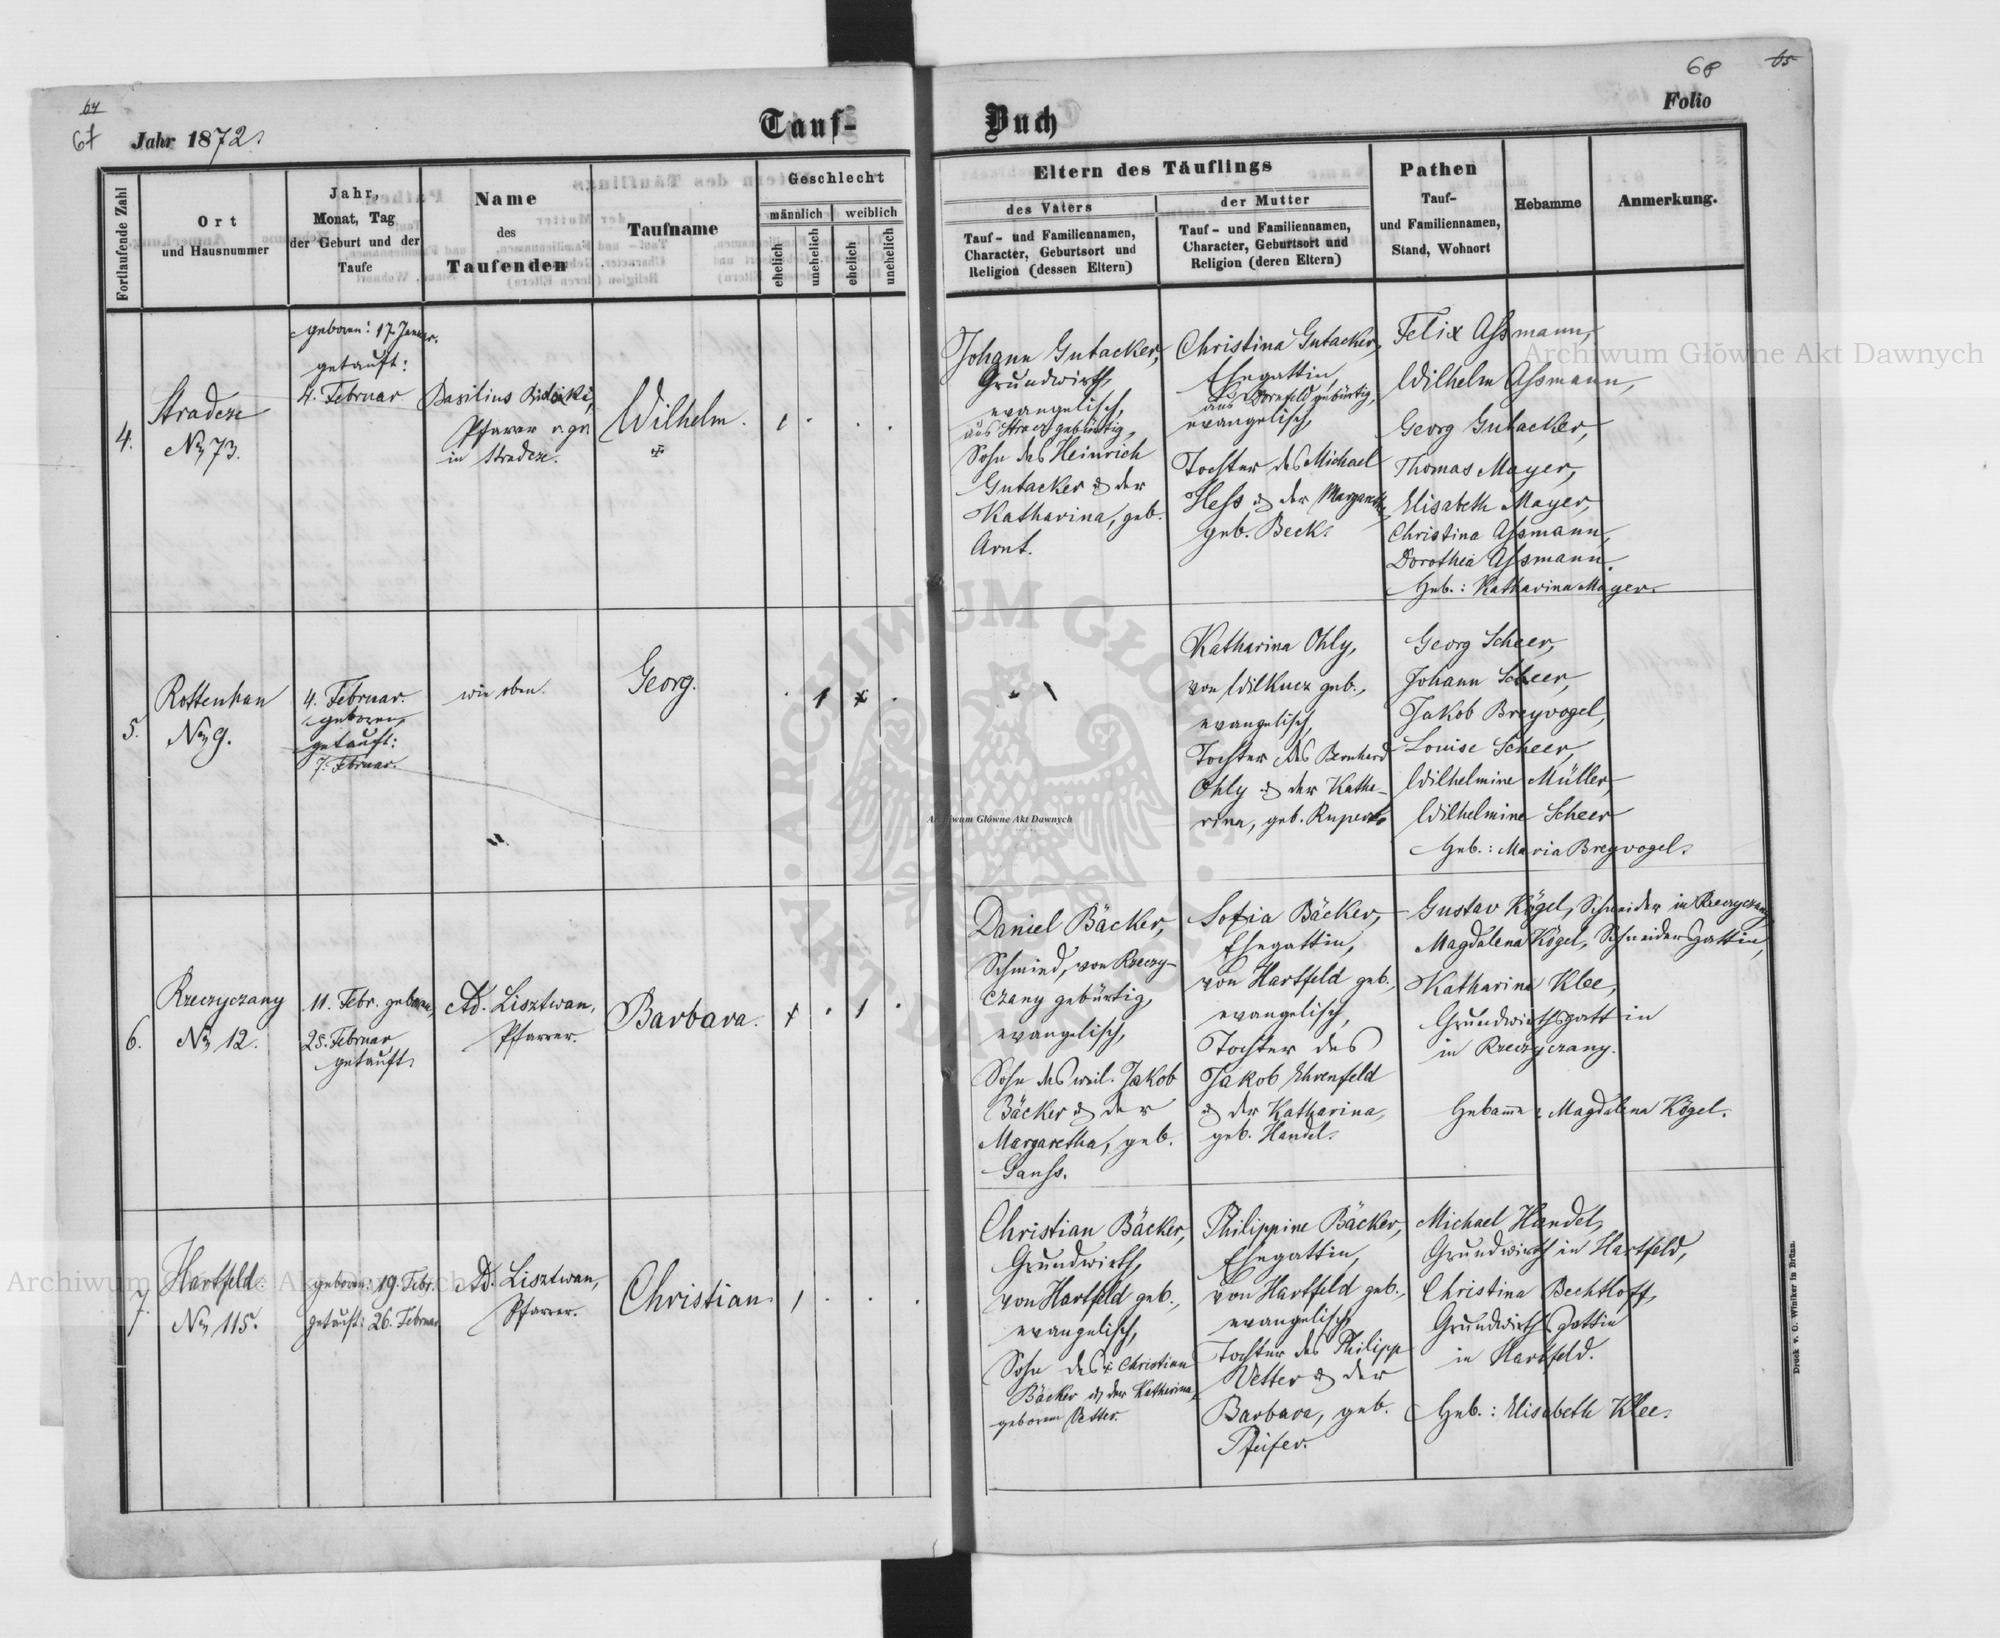 64
67
Jahr 1872.
Tauf-
Buch
68
65
Folio
Fortlaufende Zahl
Ort
und Hausnummer
Jahr,
Monat, Tag
der Geburt und der
Taufe
Name
des
Taufenden
Taufname
Geschlecht
männlich
weiblich
ehelich
unehelich
ehelich
unehelich
Eltern des Täuflings
des Vaters
Tauf- und Familiennamen,
Character, Geburtsort und
Religion (dessen Eltern)
der Mutter
Tauf- und Familiennamen,
Character, Geburtsort und
Religion (deren Eltern)
Pathen
Tauf-
und Familiennamen,
Stand, Wohnort
Hebamme
Anmerkung.
4.
Stradcze
No 73.
geboren: 17. Januar.
getauft:
4. Februar
Basilius
Pfarrer r. gr.
in Stradcze.
Wilhelm.
1 . . .
Johann Gutacker,
Grundwirth,
evangelisch,
aus gebürtig,
Sohn des Heinrich
Gutacker & der
Katharina, geb.
Arnt.
Christina Gutacker,
Ehegattin,
aus Dornfeld gebürtig,
evangelisch,
Tochter des Michael
Heß & der Margareth
geb. Beck.
Felix Aßmann,
Wilhelm Aßmann,
Georg Gutacker,
Thomas Mayer,
Elisabeth Mayer,
Christina Aßmann,
Dorothea Aßmann.
Heb.: Katharina Mayer.
5.
Rottenhan
No 9.
4. Februar.
geboren,
getauft:
7. Februar.
wie oben.
Georg.
Katharina Ohly,
von Wilkucz geb.,
evangelisch,
Tochter des Bernhard
Ohly & der Katha-
rina, geb. Rupert.
Georg Scheer,
Johann Scheer,
Jakob Breyvogel,
Louise Scheer,
Wilhelmine Müller,
Wilhelmine Scheer
Heb.: Maria Breyvogel.
6.
Rzeczyczany
No 12.
11. Febr. geboren,
25. Februar
getauft.
Ad. Lisztwan,
Pfarrer.
Barbara.
Daniel Bäcker,
Schmied, von Rzeczy-
czany gebürtig,
evangelisch,
Sohn des weil. Jakob
Bäcker & der
Margaretha, geb.
Ganss.
Sofia Bäcker,
Ehegattin,
von Hartfeld geb.,
evangelisch,
Tochter des
Jakob Ehrenfeld
& der Katharina,
geb. Handel.
Gustav Kögel, Schneider in Rzeczyczany,
Magdalena Kögel, Schneidersgattin,
Katharina Klee,
Grundwirthsgattin
in Rzeczyczany.
Hebamme: Magdalena Kögel.
7.
Hartfeld
No 115.
geboren: 19. Febr.
getauft: 26. Februar
Ad. Lisztwan,
Pfarrer.
Christian.
1 . . .
Christian Bäcker,
Grundwirth,
von Hartfeld geb.,
evangelisch,
Sohn des + Christian
Bäcker & der Katharina,
geboren Vetter.
Philippine Bäcker,
Ehegattin,
von Hartfeld geb.,
evangelisch,
Tochter des Philipp
Vetter & der
Barbara, geb.
Pfeifer.
Michael Handel,
Grundwirth in Hartfeld,
Christina Bechtloff,
Grundwirthsgattin
in Hartfeld.
Heb.: Elisabeth Klee.
Druck v. G. Winiker in Brünn.
Archiwum Główne Akt Dawnych
Archiwum Główne Akt Dawnych
Archiwum Główne Akt Dawnych
ARCHIWUM GŁÓWNE AKT DAWNYCH